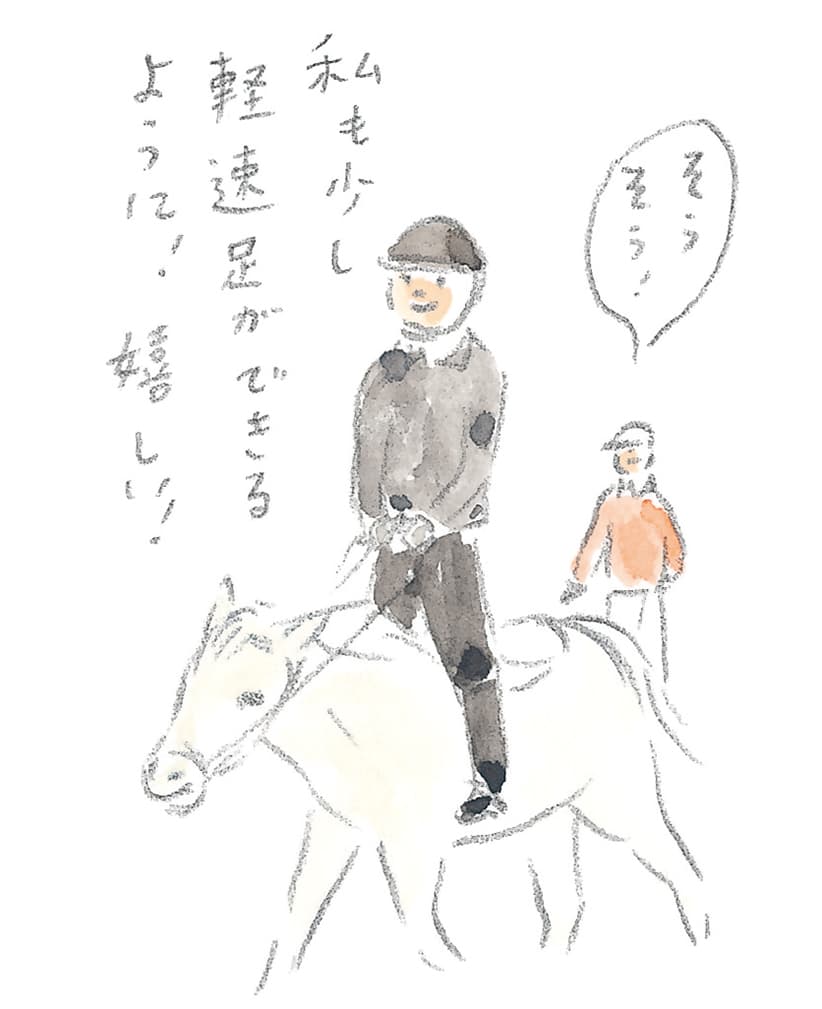 私も少し
軽速足ができる
ように！嬉しい！
そう
そう！